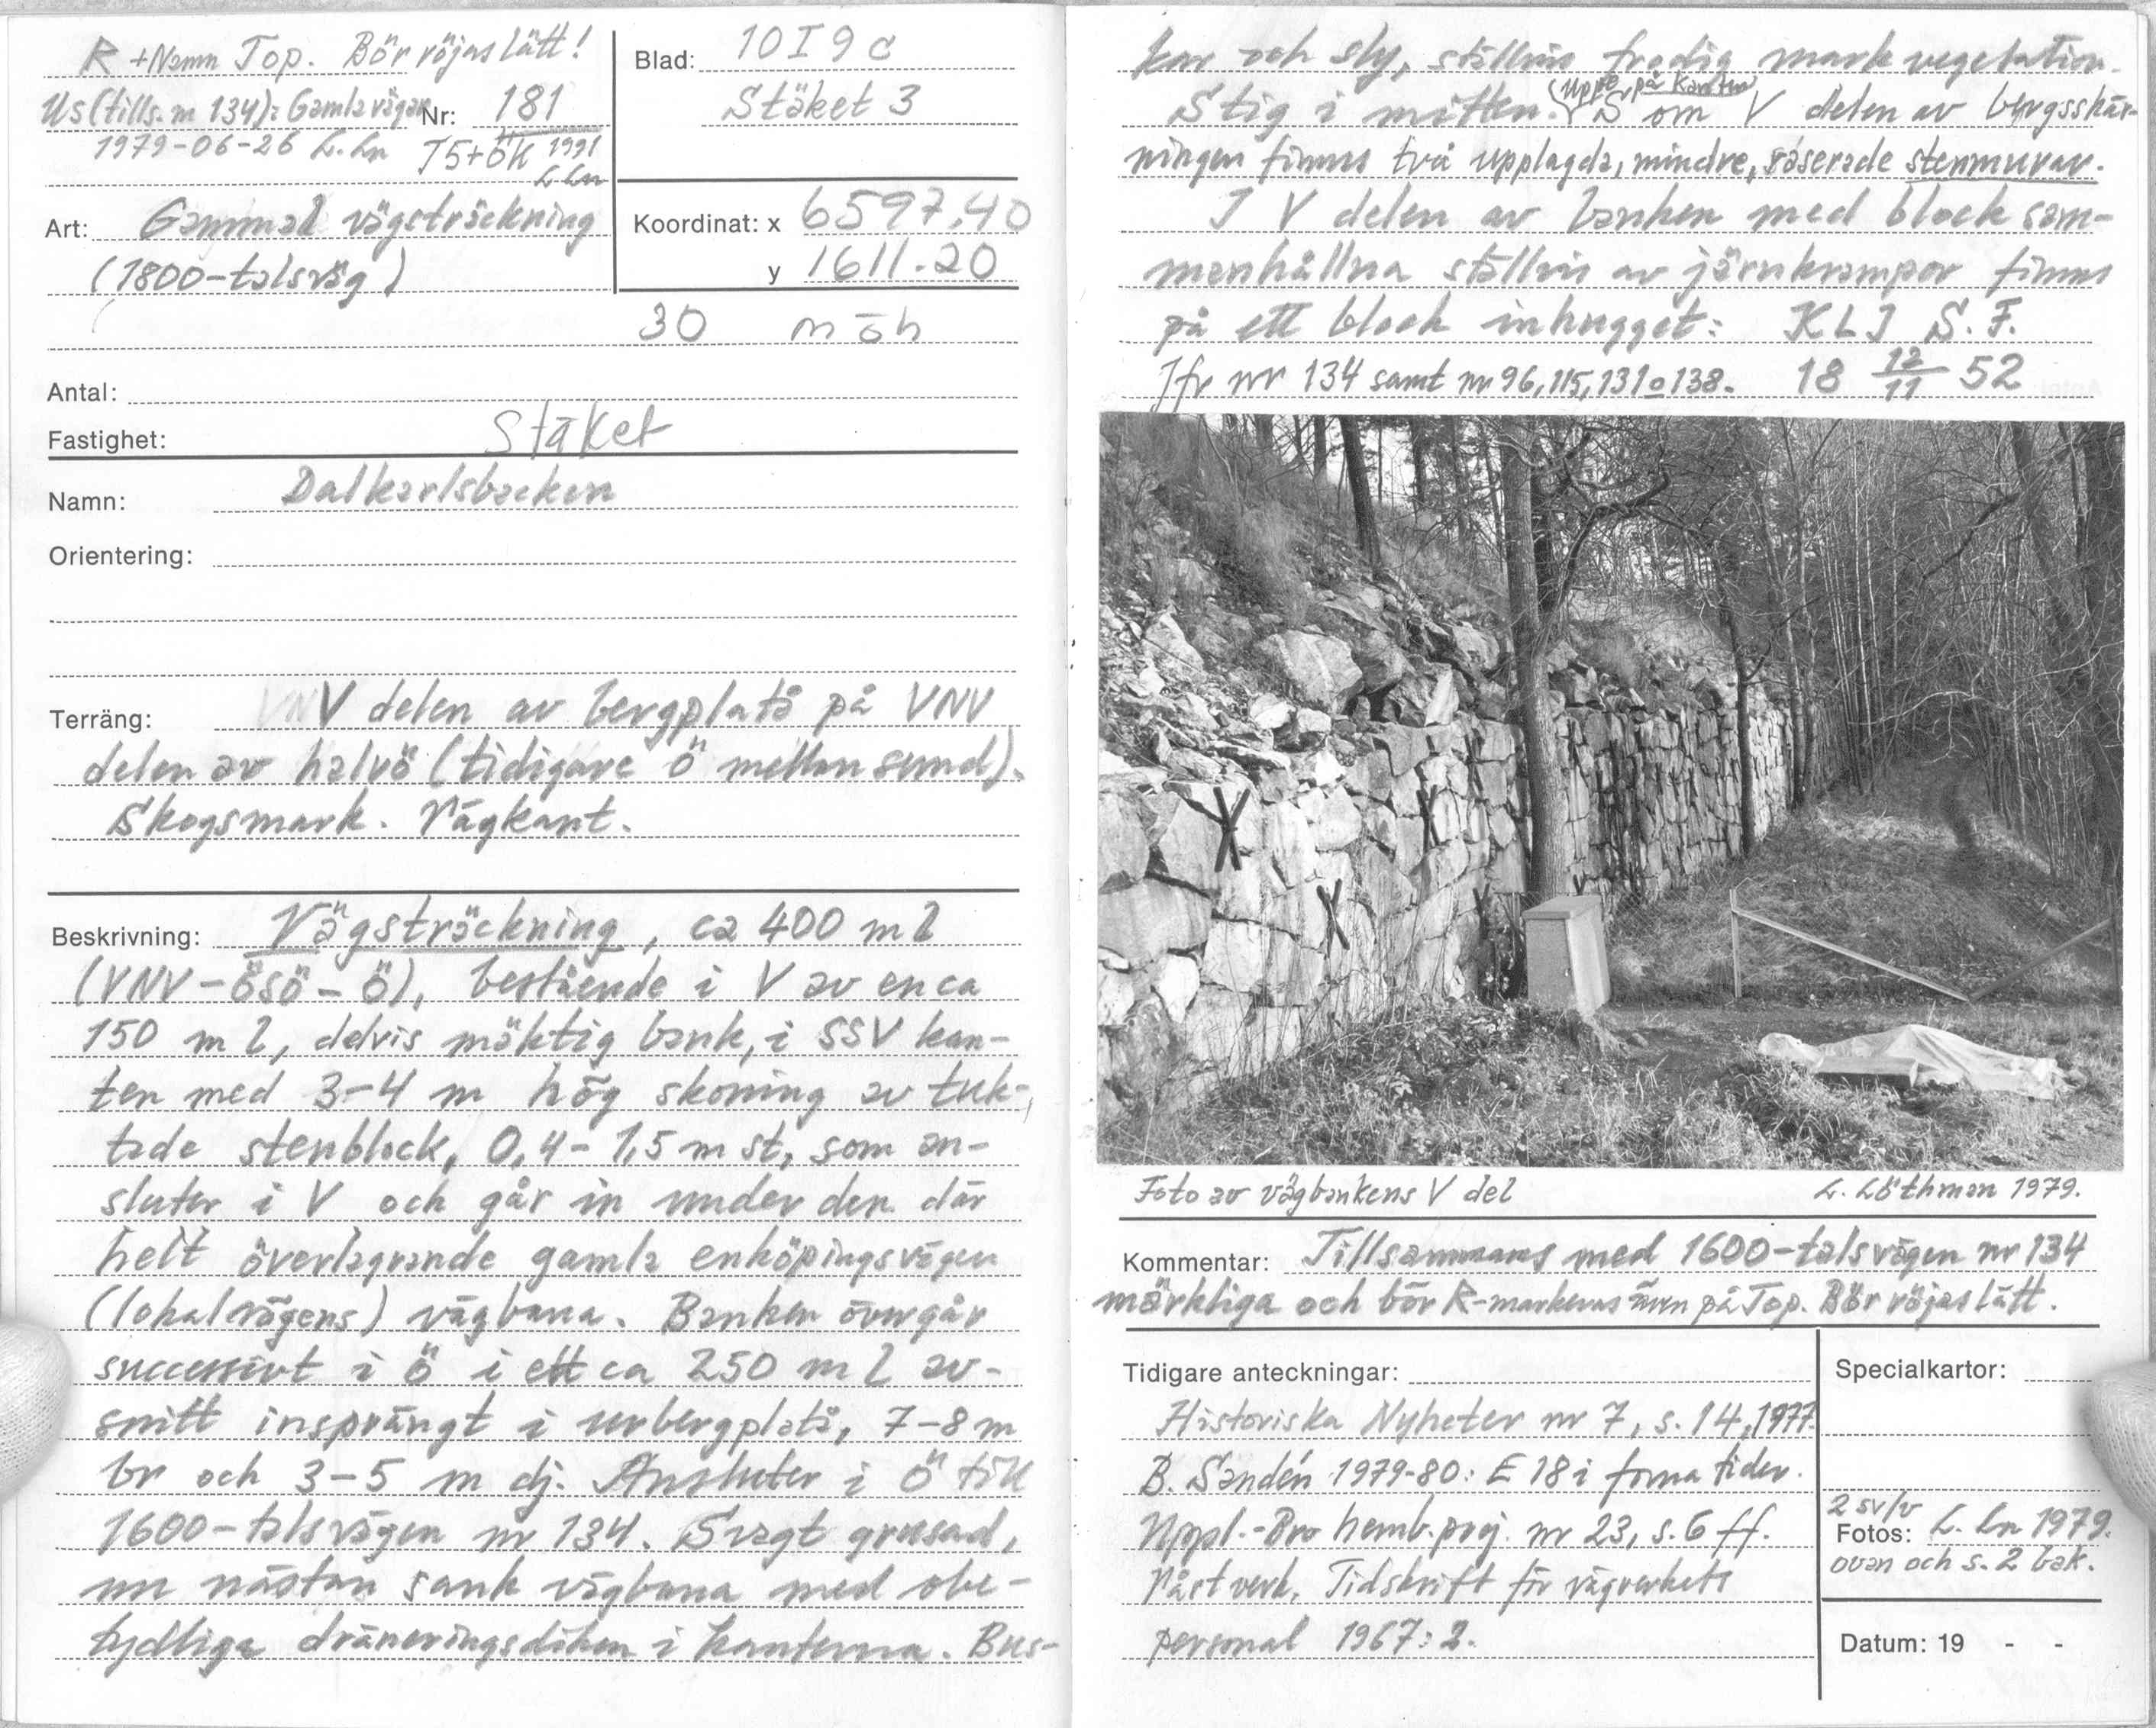 R +Namn Top. Bör röjas lätt!
Us (tills. m 134): Gamla vägar
Nr: 181
1979-06-26 L. Ln
T5+ÖK 1991
L Ln
Blad: 10 I 9 c
Stäket 3
Art: Gammal vägsträckning
(1800-talsväg)
Koordinat: x 6597.40
y 1611.20
30 m öh
Antal:
Fastighet: Stäket
Namn: Dalkarlsbacken
Orientering:
Terräng: V delen av bergplatå på VNV
delen av halvö (tidigare ö mellan sund).
Skogsmark. Vägkant.
Beskrivning: Vägsträckning, ca 400 m l
(VNV-ÖSÖ-Ö), bestående i V av en ca
150 m l, delvis mäktig bank, i SSV kan-
ten med 3-4 m hög skoning av tuk-
tade stenblock, 0,4-1,5 m st, som an-
sluter i V och går in under den där
helt överlagrande gamla enköpingsvägen
(lokalvägens) vägbana. Banken övergår
successivt i Ö i ett ca 250 m l av-
snitt insprängt i urbergplatå, 7-8 m
br och 3-5 m dj. Ansluter i Ö till
1600-talsvägen nr 134. Svagt grusad,
nu nästan sank vägbana med obe-
tydliga dräneringsdiken i kanterna. Bus-
kar och sly, ställvis frodig markvegetation.
Stig i mitten. (Uppe på kanten) S om V delen av bergsskär-
ningen finns två upplagda, mindre, raserade stenmurar.
I V delen av banken med block sam-
manhållna ställvis av järnkrampor finns
på ett block inhugget: KLJ S.F.
Jfr nr 134 samt nr 96, 115, 131 o 138. 18 12/11 52
Foto av vägbankens V del
L. Löthman 1979.
Kommentar: Tillsammans med 1600-talsvägen nr 134
märkliga och bör R-markeras även på Top. Bör röjas lätt.
Tidigare anteckningar:
Historiska Nyheter nr 7, s. 14, 1977.
B. Sandén 1979-80: E 18 i forna tider.
Uppl.-Bro hemb. proj. nr 23, s. 6 ff.
Vårt verk. Tidskrift för vägverkets
personal 1967:2.
Specialkartor:
2 sv/v
Fotos: L. Ln 1979.
ovan och s. 2 bak.
Datum: 19 - -